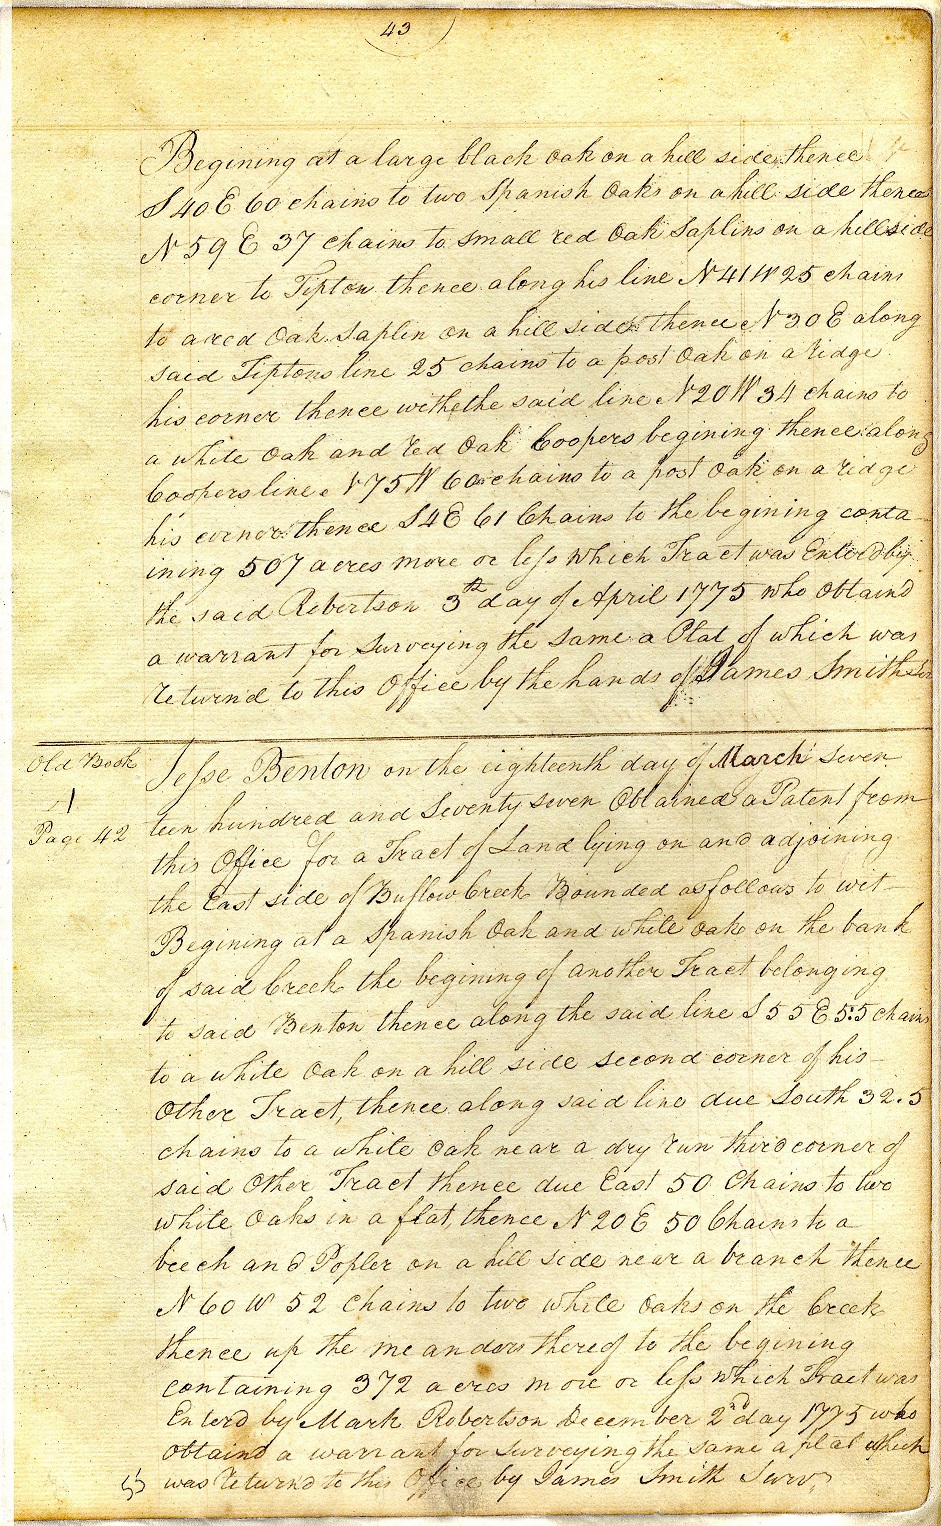 43
Begining at a large black oak on a hill side thence
S 40 E 60 chains to two Spanish Oaks on a hill side thence
N 59 E 37 chains to small red Oak Saplins on a hill side
corner to Tipton thence along his line N 41 W 25 chains
to a red Oak Saplin on a hill side thence N 30 E along
said Tiptons line 25 chains to a post Oak on a ridge
his corner thence withe the said line N 20 W 34 chains to
a white Oak and red Oak Coopers begining thence along
Coopers line N 75 W 60 chains to a post Oak on a ridge
his cornor thence S 4 E 61 Chains to the begining conta-
ining 507 acres more or less which Tract was Enterd by
the said Robertson 3th day of April 1775 who obtaind
a warrant for surveying the same a Plat of which was
returnd to this Office by the hands of James Smith Sur
Old Book
A
Page 42
Jesse Benton on the eighteenth day of March seven
teen hundred and Seventy seven Obtained a Patent from
this Office for a Tract of Land lying on and adjoining
the East side of Buflow Creek Bounded as follows to wit-
Begining at a Spanish Oak and white oak on the bank
of said Creek the begining of another Tract belonging
to said Benton thence along the said line S 55 E 5.5 chains
to a white Oak on a hill side second corner of his-
Other Tract, thence along said line due South 32.5
chains to a white oak near a dry run third corner of
said Other Tract thence due East 50 Chains to two
white Oaks in a flat, thence N 20 E 50 Chains to a
beech and Popler on a hill side near a branch thence
N 60 W 52 chains to two white oaks on the Creek
thence up the meanders thereof to the begining
containing 372 acres more or less which Tract was
Enterd by Mark Robertson December 2nd day 1775 who
obtaind a warrant for surveying the same a plat which
was returnd to this Office by James Smith Surv,